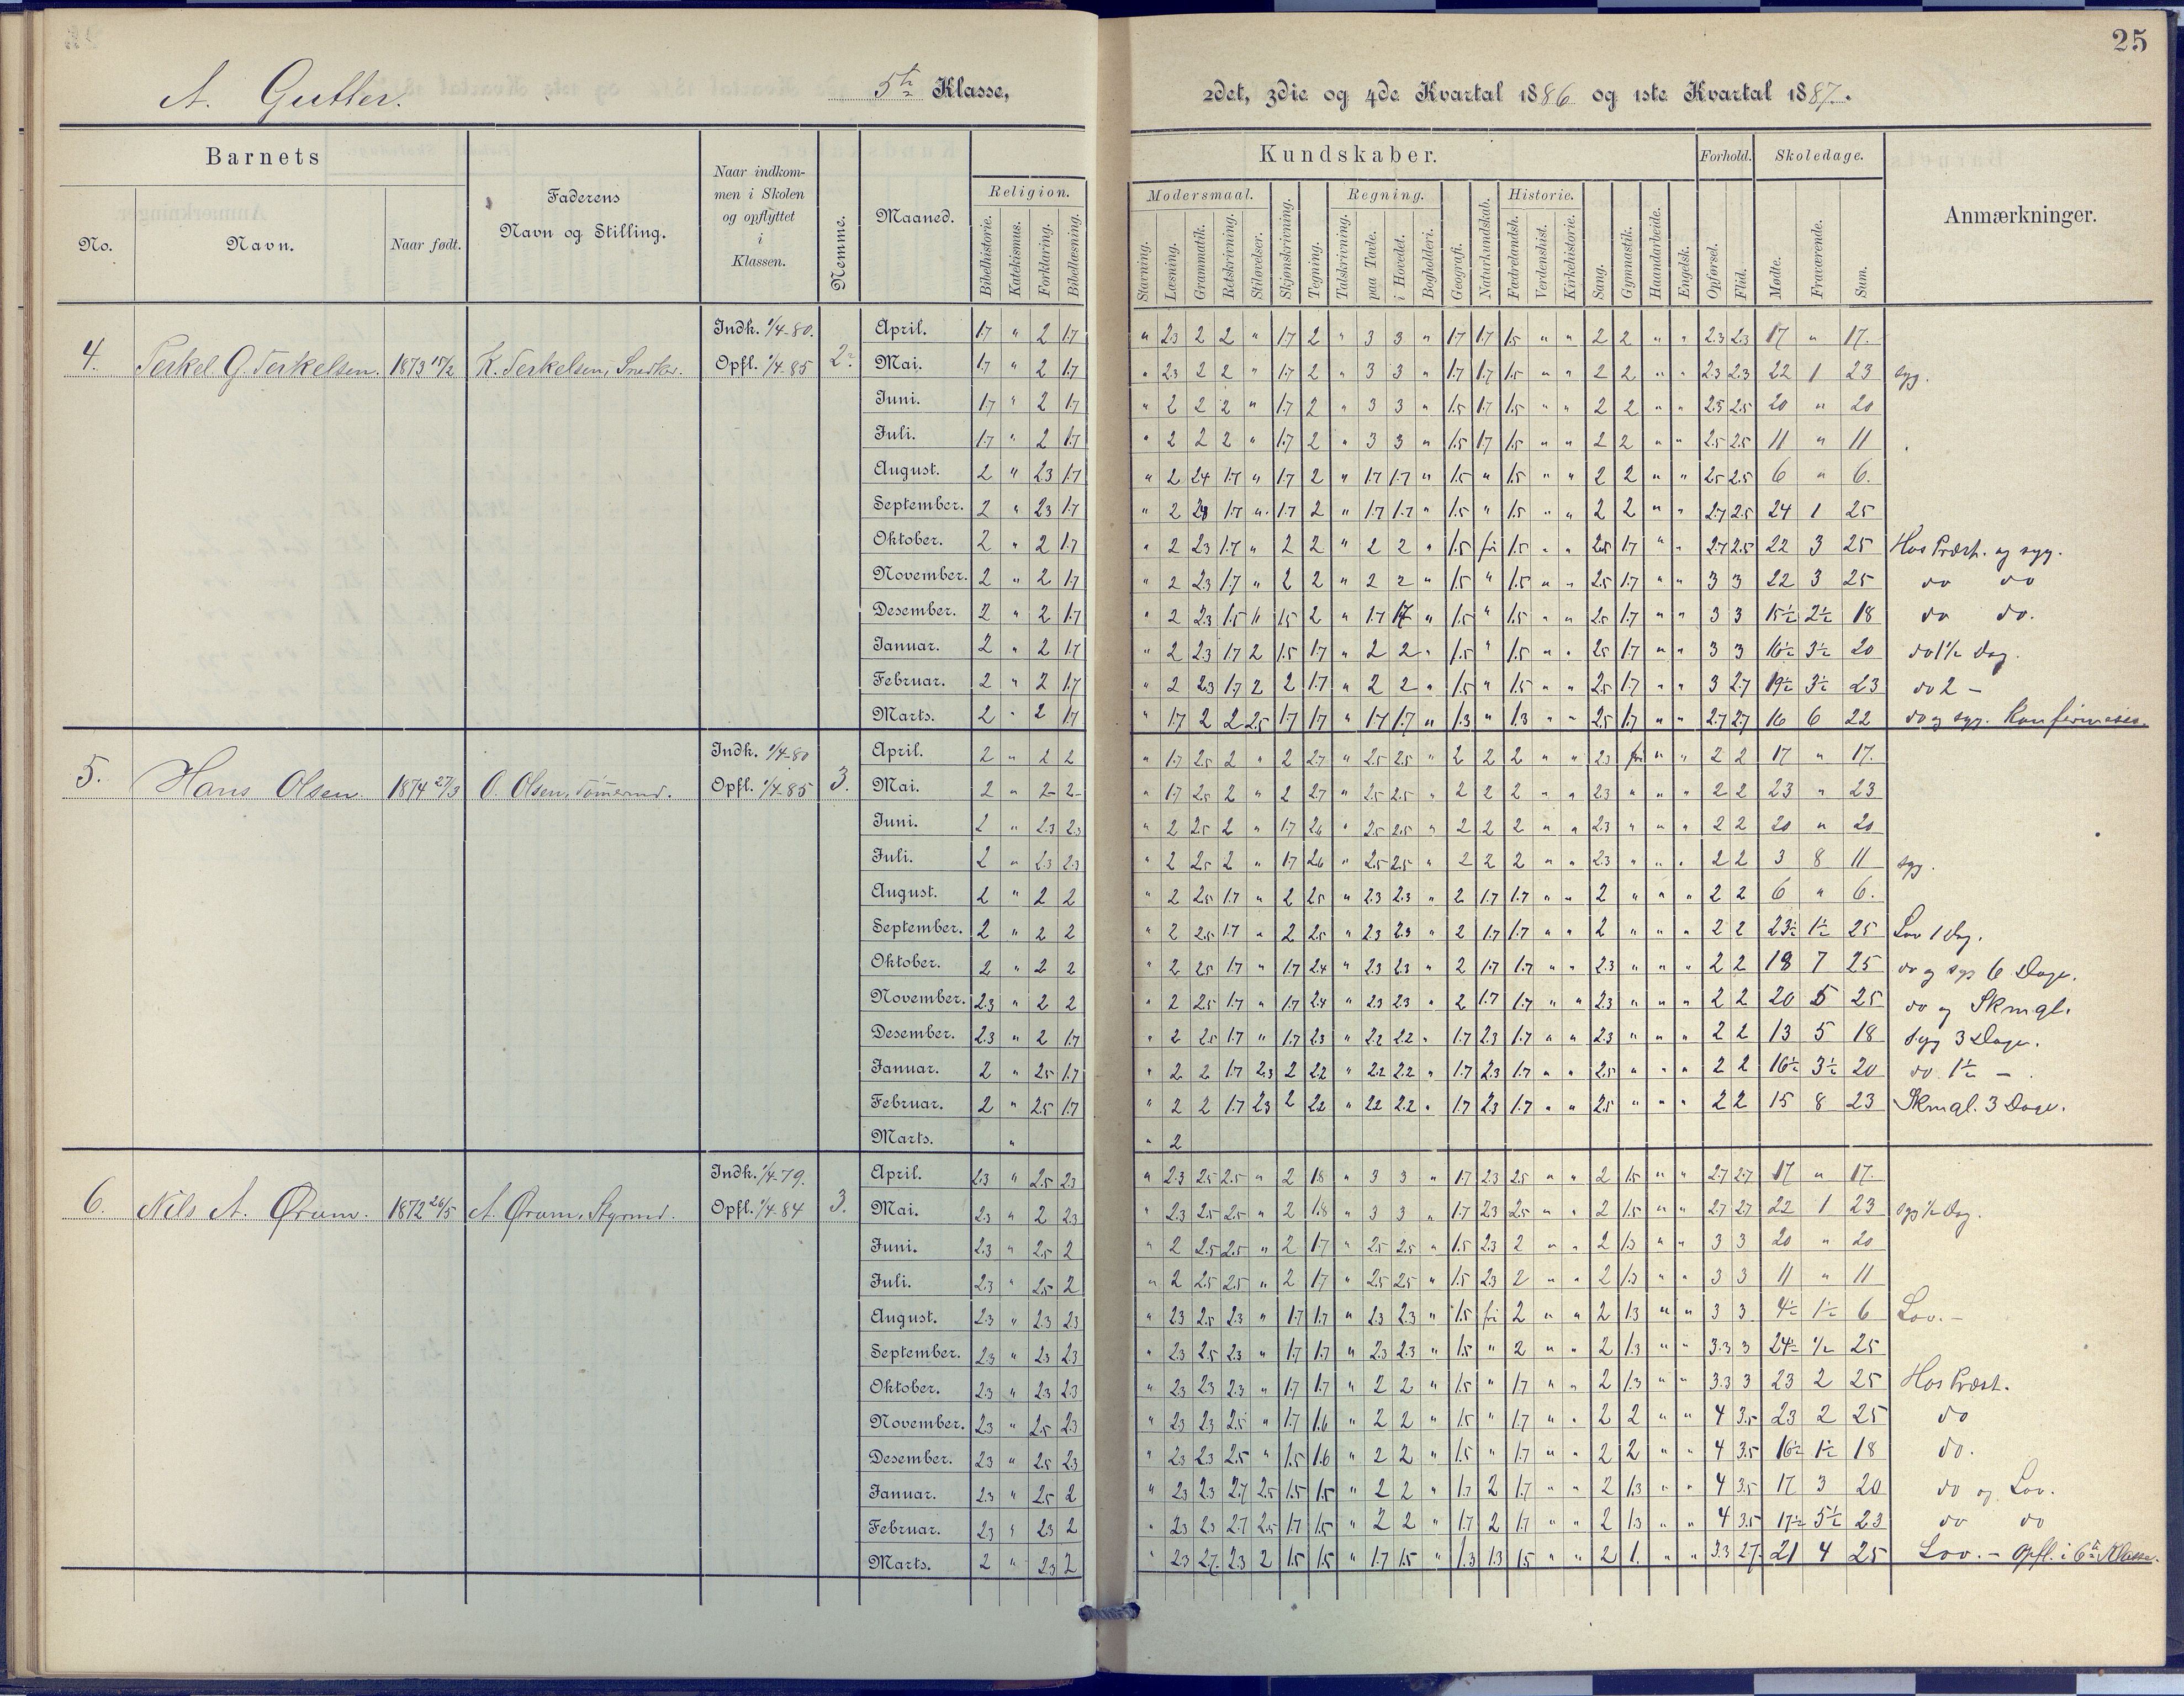 25
A. Gutter. 5te Klasse, 2det, 3die og 4de Kvartal 1886 og 1ste Kvartal 1887.
Barnets
No.
Navn.
Naar født.
Faderens
Navn og Stilling.
Naar indkom-
men i Skolen
og opflyttet
i
Klassen.
Nemme.
Maaned.
Kundskaber.
Religion.
Bibelhistorie. Katekismus. Forklaring. Bibellæsning.
Modersmaal.
Stavning. Læsning. Grammatik. Retskrivning. Stiløvelser.
Skjønskrivning. Tegning.
Regning.
Talskrivning. paa Tavle. i Hovedet. Bogholderi.
Geografi. Naturkundskab.
Historie.
Fædrelandsh. Verdenshist. Kirkehistorie.
Sang. Gymnastik. Haandarbeide. Engelsk.
Forhold.
Opførsel. Flid.
Skoledage.
Mødte. Fraværende. Sum.
Anmærkninger.
4. Terkel G. Terkelsen. 1873 15/2 K. Terkelsen, Snedker. Indk. 1/4-80. Opfl. 1/4-85 2
April. 1.7 " 2 1.7 " 2.3 2 2 " 1.7 2 " 3 3 " 1.7 1.7 1.5 " " 2 2 " " 2.3 2.3 17 " 17.
Mai. 1.7 " 2 1.7 " 2.3 2 2 " 1.7 2 " 3 3 " 1.7 1.7 1.5 " " 2 2 " " 2.3 2.3 22 1 23 syg.
Juni. 1.7 " 2 1.7 " 2 2 2 " 1.7 2 " 3 3 " 1.5 1.7 1.5 " " 2 2 " " 2.5 2.5 20 " 20
Juli. 1.7 " 2 1.7 " 2 2 2 " 1.7 2 " 3 3 " 1.5 1.7 1.5 " " 2 2 " " 2.5 2.5 11 " 11
August. 2 " 2.3 1.7 " 2 2.4 1.7 " 1.7 2 " 1.7 1.7 " 1.5 " 1.5 " " 2 2 " " 2.5 2.5 6 " 6.
September. 2 " 2.3 1.7 " 2 2.3 1.7 " 1.7 2 " 1.7 1.7 " 1.5 " 1.5 " " 2 2 " " 2.7 2.5 24 1 25
Oktober. 2 " 2 1.7 " 2 2.3 1.7 " 2 2 " 2 2 " 1.5 fri 1.5 " " 2.5 1.7 " " 2.7 2.5 22 3 25 Hos Præst. og syg.
November. 2 " 2 1.7 " 2 2.3 1.7 " 2 2 " 2 2 " 1.5 " 1.5 " " 2.5 1.7 " " 3 3 22 3 25 do do
Desember. 2 " 2 1.7 " 2 2.3 1.5 " 1.5 2 " 1.7 1.7 " 1.5 " 1.5 " " 2.5 1.7 " " 3 3 15½ 2½ 18 do do.
Januar. 2 " 2 1.7 " 2 2.3 1.7 2 1.5 1.7 " 2 2 " 1.5 " 1.5 " " 2.5 1.7 " " 3 3 16½ 3½ 20 do 1½ Dag.
Februar. 2 " 2 1.7 " 2 2.3 1.7 2 2 1.7 " 2 2 " 1.5 " 1.5 " " 2.5 1.7 " " 3 2.7 19½ 3½ 23 do 2 -
Marts. 2 " 2 1.7 " 1.7 2 2 2.5 1.7 1.7 " 1.7 1.7 " 1.3 " 1.3 " " 2.5 1.7 " " 2.7 2.7 16 6 22 do og syg. Konfirmeres.
5. Hans Olsen. 1874 27/3 O. Olsen, Tømmermd. Indk. 1/4-80 Opfl. 1/4-85 3.
April. 2 " 2 2 " 1.7 2.5 2 " 2 2.7 " 2.5 2.5 " 2 2 2 " " 2.3 fri " " 2 2 17 " 17.
Mai. 2 " 2 2 " 1.7 2.5 2 " 2 2.7 " 2.5 2.5 " 2 2 2 " " 2.3 " " " 2 2 23 " 23
Juni. 2 " 2.3 2.3 " 2 2.5 2 " 1.7 2.6 " 2.5 2.5 " 2 2 2 " " 2.3 " " " 2 2 20 " 20
Juli. 2 " 2.3 2.3 " 2 2.5 2 " 1.7 2.6 " 2.5 2.5 " 2 2 2 " " 2.3 " " " 2 2 3 8 11 syg.
August. 2 " 2 2 " 2 2.5 1.7 " 2 2.5 " 2.3 2.3 " 2 1.7 1.7 " " 2 " " " 2 2 6 " 6.
September. 2 " 2 2 " 2 2.5 1.7 " 2 2.5 " 2.3 2.3 " 2 1.7 1.7 " " 2 " " " 2 2 23½ 1½ 25 Lov 1 Dag.
Oktober. 2 " 2 2 " 2 2.5 1.7 " 1.7 2.4 " 2.3 2.3 " 2 1.7 1.7 " " 2.3 " " " 2 2 18 7 25 do og syg 6 Dage.
November. 2.3 " 2 2 " 2 2.5 1.7 " 1.7 2.4 " 2.3 2.3 " 2 1.7 1.7 " " 2.3 " " " 2 2 20 5 25 do og Skmgl.
Desember. 2.3 " 2 1.7 " 2 2.5 1.7 " 1.7 2.3 " 2.2 2.2 " 1.7 2.3 1.7 " " 2.3 " " " 2 2 13 5 18 Syg 3 Dage.
Januar. 2 " 2.5 1.7 " 2 2 1.7 2.3 2 2.2 " 2.2 2.2 " 1.7 2.3 1.7 " " 2.5 " " " 2 2 16½ 3½ 20 do. 1½ -
Februar. 2 " 2.5 1.7 " 2 2 1.7 2.3 2 2.2 " 2.2 2.2 " 1.7 2.3 1.7 " " 2.5 " " " 2 2 15 8 23 Skmgl. 3 Dage.
Marts. " " 2
6. Nils A. Ørum. 1872 26/5 A. Ørum, Styrmd. Indk. 1/4-79. Opfl. 1/4-84 3.
April. 2.3 " 2.5 2.3 " 2.3 2.5 2.5 " 2 1.8 " 3 3 " 1.7 2.3 2.5 " " 2 1.5 " " 2.7 2.7 17 " 17.
Mai. 2.3 " 2 2.3 " 2.3 2.5 2.5 " 2 1.8 " 3 3 " 1.7 2.3 2.5 " " 2 1.5 " " 2.7 2.7 22 1 23 syg ½ Dag.
Juni. 2.3 " 2.5 2 " 2 2.5 2.5 " 2 1.7 " 2.5 2.5 " 1.5 2.3 2 " " 2 1.3 " " 3 3 20 " 20
Juli. 2.3 " 2.5 2 " 2 2.5 2.5 " 2 1.7 " 2.5 2.5 " 1.5 2.3 2 " " 2 1.3 " " 3 3 11 " 11
August. 2.3 " 2.3 2.3 " 2.3 2.5 2.3 " 1.7 1.7 " 2.3 2.3 " 1.5 fri 2 " " 2 1.3 " " 3 3 4½ 1½ 6 Lov. -
September. 2.3 " 2.3 2.3 " 2.3 2.5 2.3 " 1.7 1.7 " 2.3 2.3 " 1.5 " 2 " " 2 1.3 " " 3.3 3 24½ ½ 25
Oktober. 2.3 " 2.3 2.3 " 2.3 2.3 2.3 " 1.7 1.7 " 2 2 " 1.5 " 1.7 " " 2 1.3 " " 3.3 3 23 2 25 Hos Præst.
November. 2.3 " 2.5 2.3 " 2.3 2.3 2.5 " 1.7 1.6 " 2 2 " 1.5 " 1.7 " " 2 2 " " 4 3.5 23 2 25 do
Desember. 2.3 " 2.5 2.3 " 2.3 2.3 2.5 " 1.5 1.6 " 2 2 " 1.5 " 1.7 " " 2 2 " " 4 3.5 16½ 1½ 18 do.
Januar. 2.3 " 2.5 2 " 2.3 2.3 2.7 2.5 1.5 1.5 " 2 2 " 1.7 2 1.7 " " 2 1.3 " " 4 3.5 17 3 20 do og Lov.
Februar. 2.3 " 2.3 2 " 2.3 2.3 2.7 2.5 1.7 1.5 " 2 2 " 1.7 2 1.7 " " 2 1.3 " " 4 3.5 17½ 5½ 23 do do
Marts. 2 " 2.3 2 " 2.3 2.7 2.3 2 1.5 1.5 " 1.7 1.5 " 1.3 1.3 1.5 " " 2 1. " " 3.3 2.7 21 4 25 Lov. - Opfl. i 6te Klasse.